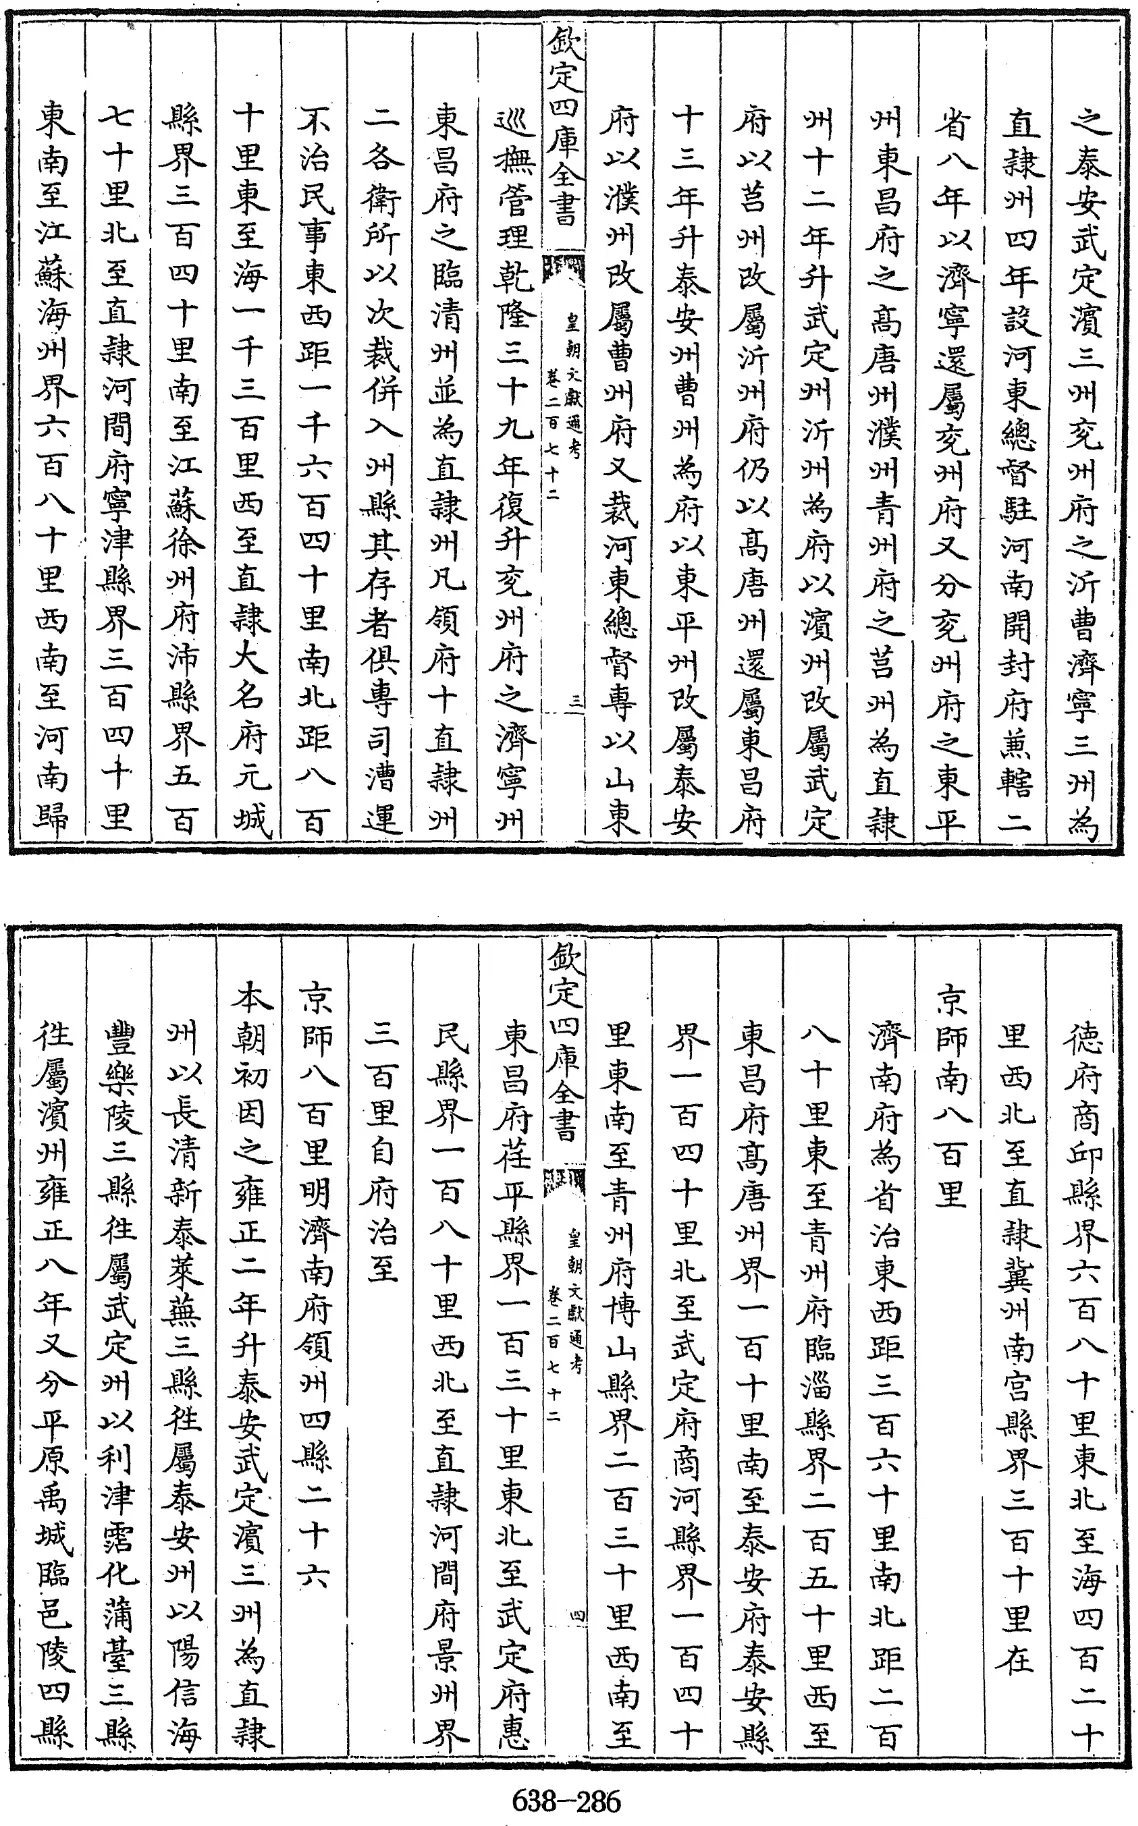 之泰安武定濱三州兗州府之沂曹濟寧三州為
直隷州四年設河東總督駐河南開封府兼轄二
省八年以濟寧還屬兗州府又分兗州府之東平
州東昌府之高唐州濮州青州府之莒州為直隷
州十二年升武定州沂州為府以濱州改屬武定
府以莒州改屬沂州府仍以高唐州還屬東昌府
十三年升泰安州曹州為府以東平州改屬泰安
府以濮州改屬曹州府又裁河東總督專以山東
欽定四庫全書
皇朝文獻通考
卷二百七十二
三
巡撫管理乾隆三十九年復升兗州府之濟寧州
東昌府之臨清州並為直隷州凡領府十直隷州
二各衛所以次裁併入州縣其存者俱專司漕運
不治民事東西距一千六百四十里南北距八百
十里東至海一千三百里西至直隷大名府元城
縣界三百四十里南至江蘇徐州府沛縣界五百
七十里北至直隷河間府寧津縣界三百四十里
東南至江蘇海州界六百八十里西南至河南歸
德府商邱縣界六百八十里東北至海四百二十
里西北至直隷冀州南宫縣界三百十里在
京師南八百里
濟南府為省治東西距三百六十里南北距二百
八十里東至青州府臨淄縣界二百五十里西至
東昌府高唐州界一百十里南至泰安府泰安縣
界一百四十里北至武定府商河縣界一百四十
里東南至青州府博山縣界二百三十里西南至
欽定四庫全書
皇朝文獻通考
卷二百七十二
四
東昌府茌平縣界一百三十里東北至武定府惠
民縣界一百八十里西北至直隷河間府景州界
三百里自府治至
京師八百里明濟南府領州四縣二十六
本朝初因之雍正二年升泰安武定濱三州為直隷
州以長清新泰萊蕪三縣往屬泰安州以陽信海
豐樂陵三縣往屬武定州以利津霑化蒲臺三縣
往屬濱州雍正八年又分平原禹城臨邑陵四縣
638-286